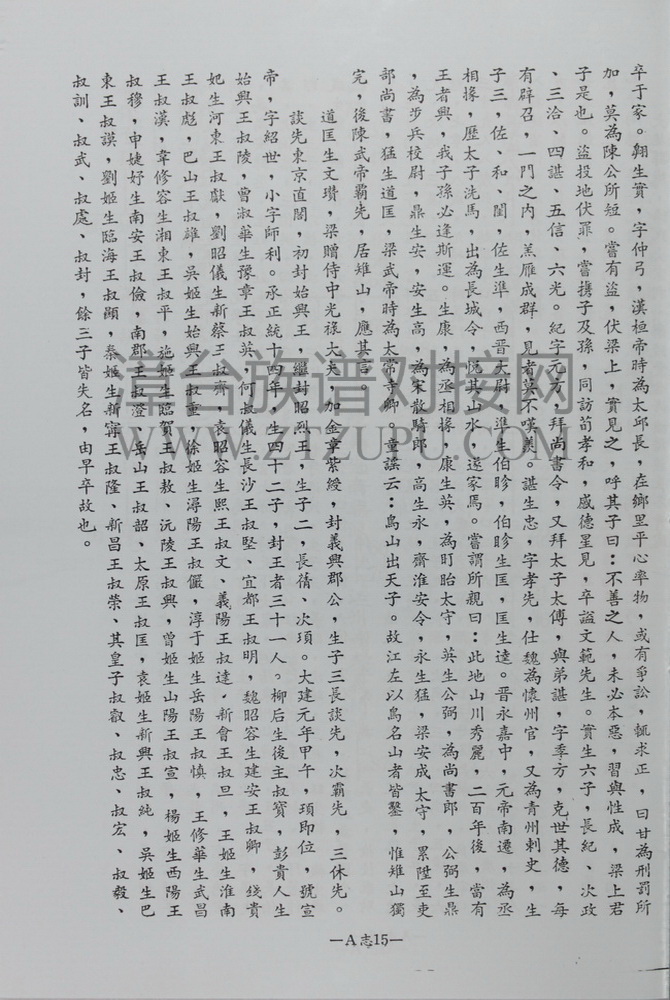 卒于家。翔生實，字仲弓，漢桓帝時為太邱長，在鄉里平心率物，或有爭訟，輒求正，曰甘為刑罰所
加，莫為陳公所短。嘗有盜，伏梁上，實見之，呼其子曰：不善之人，未必本惡，習與性成，梁上君
子是也。盜投地伏罪，嘗携子及孫，同訪荀孝和，感德星見，卒謚文範先生。實生六子，長紀、次政
、三洽、四諶、五信、六光。紀字元方，拜尚書令，又拜太子太傅，與弟諶，字季方，克世其德，每
有辟召，一門之內，羔雁成群，見者莫不嘆羨。諶生忠，字孝先，仕魏為懷州官，又為青州刺史，生
子三，佐、和、閏，佐生準，西晉太尉，準生伯眕，伯眕生匡，匡生達。晉永嘉中，元帝南遷，為丞
相掾，歷太子洗馬，出為長城令，悅其山水，遂家焉。嘗謂所親曰：此地山川秀麗，二百年後，當有
王者興，我子孫必逢斯運。生康，為丞相掾，康生英，為盱眙太守，英生公弼，為尚書郎，公弼生鼎
，為步兵校尉，鼎生安，安生高，為宋散騎郎，高生永，齊淮安令，永生猛，梁安成太守，累陞至吏
部尚書，猛生道匡，梁武帝時為太常寺卿。童謠云：鳥山出天子。故江左以鳥名山者皆鑿，惟雉山獨
完，後陳武帝霸先，居雉山，應其言。
道匡生文瓚，梁贈侍中光祿大夫，加金章紫綬，封義興郡公，生子三長談先，次霸先，三休先。
談先東京直閣，初封始興王，繼封昭烈王，生子二，長蒨、次頊。大建元年甲午，頊即位，號宣
帝，字紹世，小字師利。承正統十四年，生四十二子，封王者三十一人。柳后生後主叔寶，彭貴人生
始興王叔陵，曾淑華生豫章王叔英，何叔儀生長沙王叔堅、宜都王叔明，魏昭容生建安王叔卿，錢貴
妃生河東王叔獻，劉昭儀生新蔡王叔齊，袁昭容生熙王叔文、義陽王叔達，新會王叔旦，王姬生淮南
王叔彪，巴山王叔雄，吳姬生始興王叔重，徐姬生潯陽王叔儼，淳于姬生岳陽王叔慎，王修華生武昌
王叔漢，韋修容生湘東王叔平，施姬生臨賀王叔敖、沅陵王叔興，曾姬生山陽王叔宣，楊姬生西陽王
叔穆，申婕妤生南安王叔儉，南郡王叔澄、岳山王叔韶、太原王叔匡，袁姬生新興王叔純，吳姬生巴
東王叔謨，劉姬生臨海王叔顯，秦姬生新寧王叔隆、新昌王叔榮、其皇子叔叡、叔忠、叔宏、叔毅、
叔訓、叔武、叔處、叔封，餘三子皆失名，由早卒故也。
—A志15—
漳台族谱对接网
WWW.ZTZUPU.COM